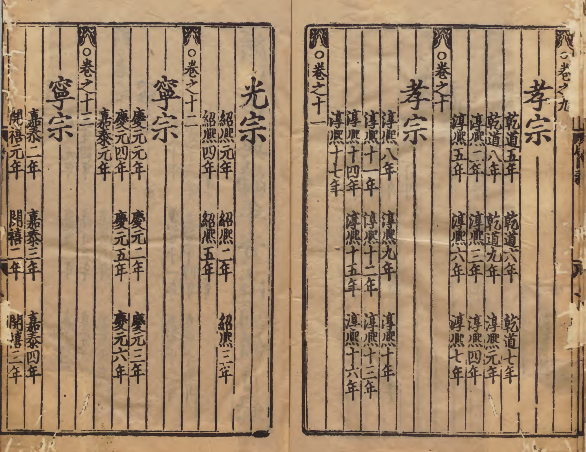 ○卷之九
孝宗
乾道五年 乾道六年 乾道七年
乾道八年 乾道九年 淳熙元年
淳熙二年 淳熙三年 淳熙四年
淳熙五年 淳熙六年 淳熙七年
○卷之十
孝宗
淳熙八年 淳熙九年 淳熙十年
淳熙十一年 淳熙十二年 淳熙十三年
淳熙十四年 淳熙十五年 淳熙十六年
淳熙十七年
○卷之十一
光宗
紹熙元年 紹熙二年 紹熙三年
紹熙四年 紹熙五年
○卷之十二
寧宗
慶元元年 慶元二年 慶元三年
慶元四年 慶元五年 慶元六年
嘉泰元年
○卷之十三
寧宗
嘉泰二年 嘉泰三年 嘉泰四年
開禧元年 開禧二年 開禧三年